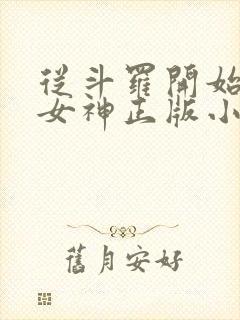 從斗羅開始
女神正版小
舊月安好